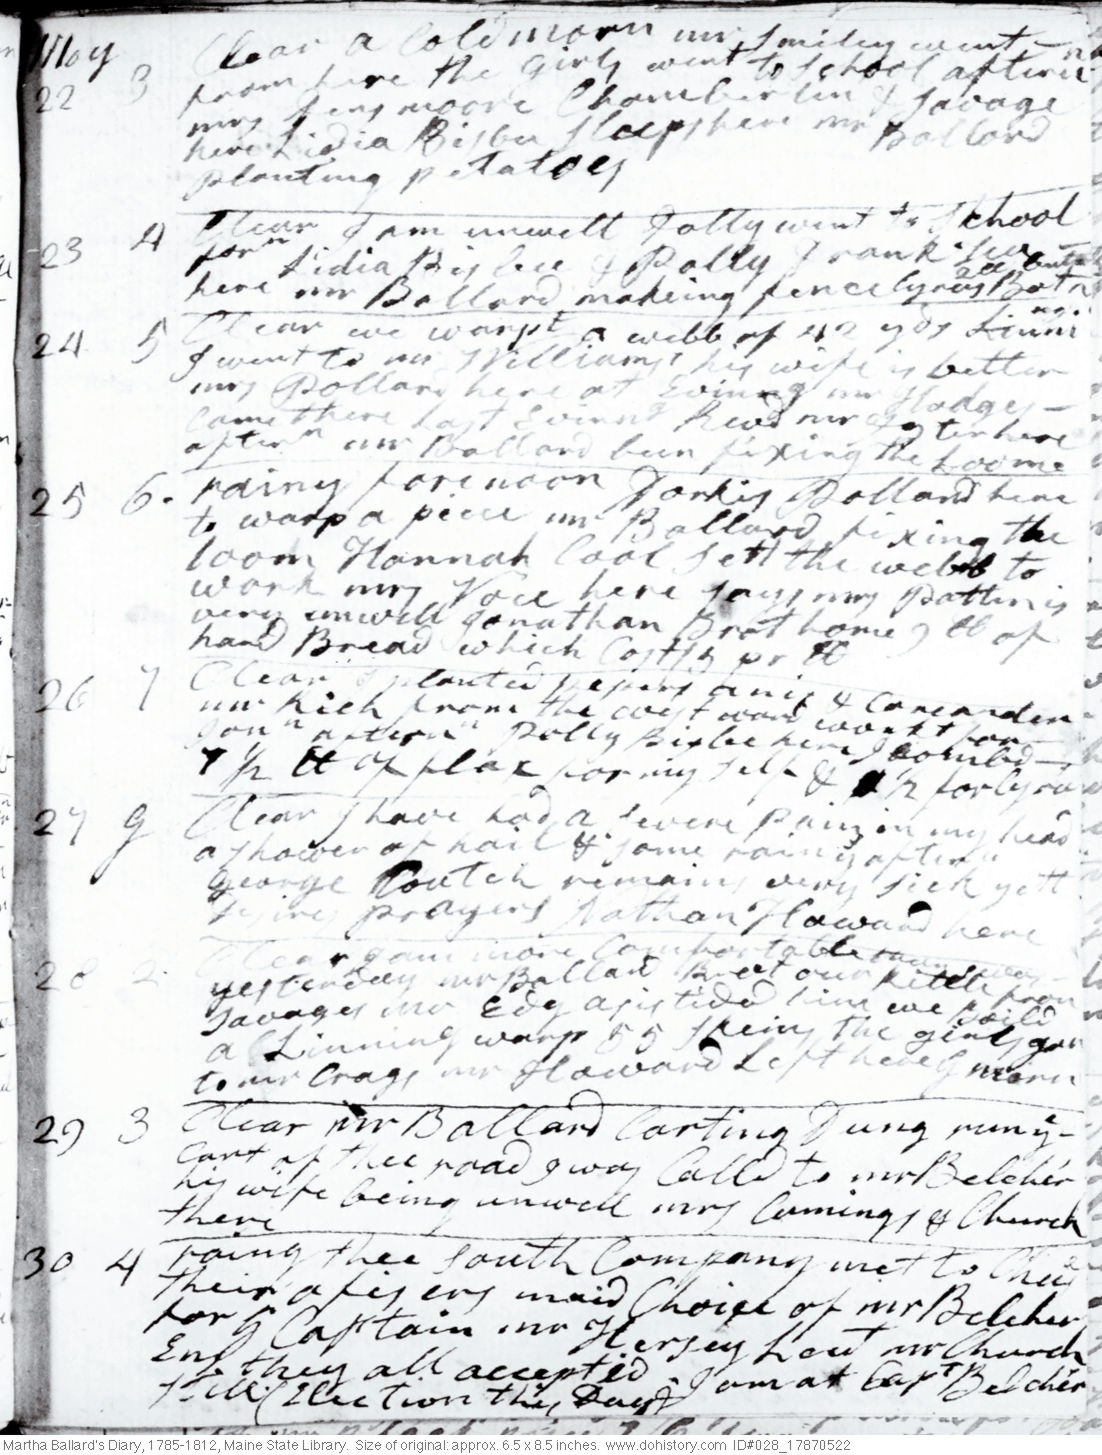 May Clear a Cold morn mr Smiley went
22 3 from here the Girls went to School aftern
mrs Densmoore Chamberlin & Savage
here Lidia Bisbee Sleeps here mr Ballard
planting petatoes
Clear I am unwell Dolly went to School
23 4 forn Lidia Bisbee & Polly Frank
here mr Ballard makeing fence Cyrus
Clear we warpt a webb of 42 yds Linnin
24 5 I went to mr Williams his wife is better
mrs Pollard here at Evining mr Hodges
Came there last Evinng Revd mr Foster here
aftern mr Ballard been fixing the Loome
25 6. rainy forenoon Dorkis Pollard here
to warp a piece mr Ballard fixing the
loom Hannah Cool sett the webb to
work mrs Voce here says mrs Pattin is
very unwell Jonathan Brot home 9 lb of
hard Bread which Cost /5 pr lb
26 7 Clear I planted pepers anis & Coreander
mr Rich from the westward workt for
Jonn aftern Polly Bisbee here I combed
7 1/2 lb of flax for my self & 1/2 for Cyrus
27 g Clear I have had a severe Pain in my head
a shower of hail & some rain ys aftern
George Coutch remains very sick yett
desires prayers Nathan Howard here
28 2 Clear I am more Comfortable than I was
yesterday mr Ballard Brot our Kittle from
Savages mr Edy asisted him we Boild
a Linning warp 55 skeins the girls gon
to mr Crags mr Howard Left here ys morn
29 3 Clear mr Ballard Carting Dung runys
Cart of thee road I was Calld to mr Belcher
his wife being unwell mrs Cumings & Church
there
30 4 raing thee South Company met to Chuse
their afisers maid Choice of mr Belcher
for ys Captain mr Hersey Leut mr Church
Ens they all accepted I am at Capt Belcher
Still (Election this Day)
Martha Ballard's Diary, 1785-1812, Maine State Library. Size of original: approx. 6.5 x 8.5 inches. www.dohistory.com ID#028_17870522